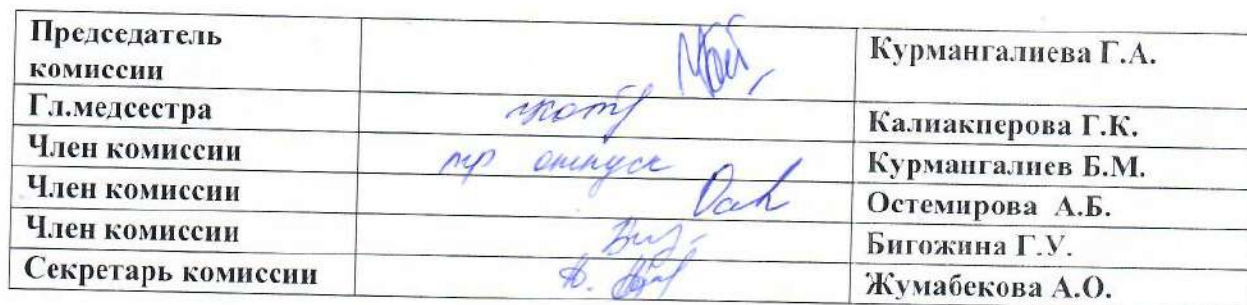 Председатель
комиссии
Курмангалиева Г.А.
Гл.медсестра
Калиакперова Г.К.
Член комиссии
тр отпуск
Курмангалиев Б.М.
Член комиссии
Остемирова А.Б.
Член комиссии
Бигожина Г.У.
Секретарь комиссии
Жумабекова А.О.